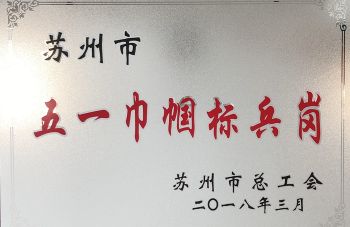 苏州市
五一巾帼标兵岗
苏州市总工会
二〇一八年三月